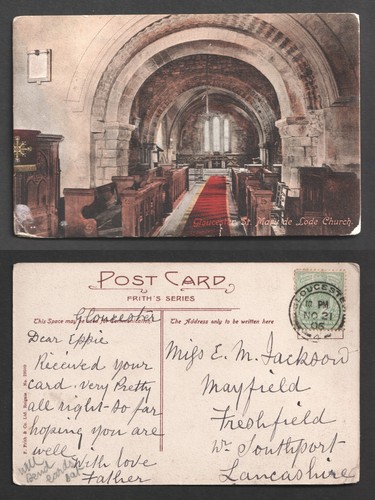 Gloucester, St. Mary de Lode Church.
POST CARD
FRITH'S SERIES
This Space may
The Address only to be written here
Gloucester
Dear Eppie
Received your
card. very Pretty
all right - so far
hoping you are
well
with love
Father
will
send
cards
Miss E. M. Jackson
Mayfield
Freshfield
Nr Southport
Lancashire
GLOUCESTER
12 PM
NO 21
06
F. Frith & Co. Ltd. Reigate. No.